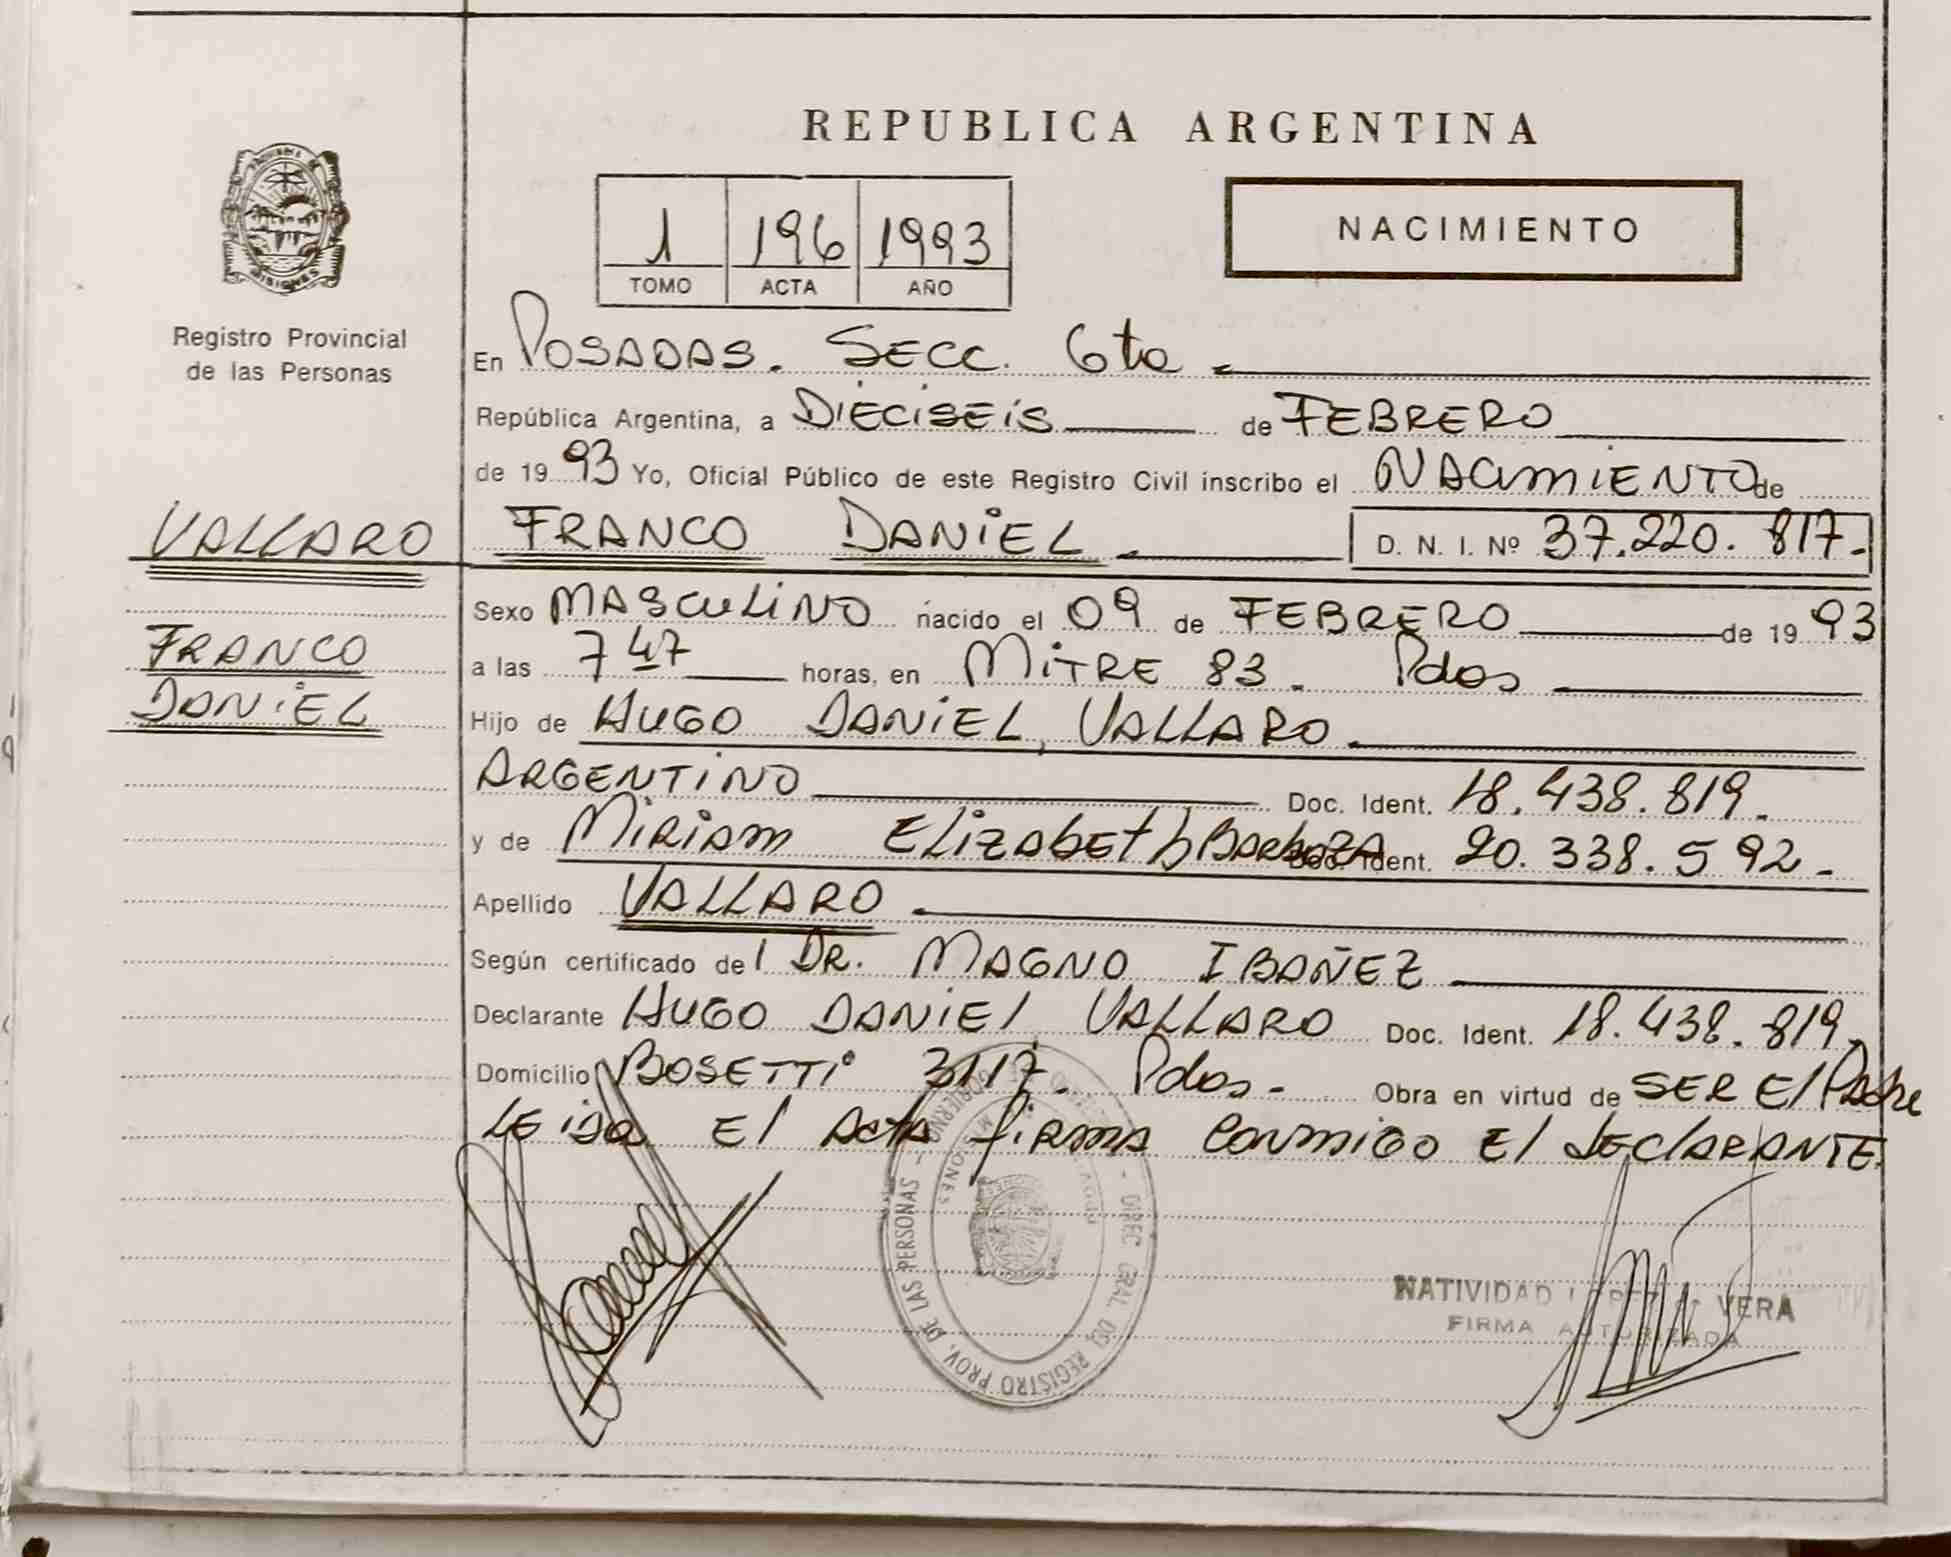 REPUBLICA ARGENTINA
PROVINCIA DE
MISIONES
Registro Provincial
de las Personas
1 196 1993
TOMO ACTA AÑO
NACIMIENTO
En POSADAS. SECC. 6ta
República Argentina, a DIECISEIS de FEBRERO
de 19 93 Yo, Oficial Público de este Registro Civil inscribo el NACIMIENTO de
VALLARO FRANCO DANIEL D. N. I. Nº 37.220.817.
Sexo MASCULINO nacido el 09 de FEBRERO de 19 93
FRANCO
a las 7 47 horas, en MITRE 83. Pdas
DANIEL
Hijo de HUGO DANIEL, VALLARO.
ARGENTINO Doc. Ident. 18.438.819.
y de MIRIAM ELIZABETH BARBOZA Doc. Ident. 20.338.592.
Apellido VALLARO.
Según certificado del DR. MAGNO IBAÑEZ
Declarante HUGO DANIEL VALLARO Doc. Ident. 18.438.819.
Domicilio BOSETTI 3117. Pdas. Obra en virtud de SER El Padre
LEida El Acta firma conmigo El DEClARANTE.
DIREC. GRAL. DEL REGISTRO PROV. DE LAS PERSONAS
MISIONES
NATIVIDAD LOPEZ de VERA
FIRMA AUTORIZADA